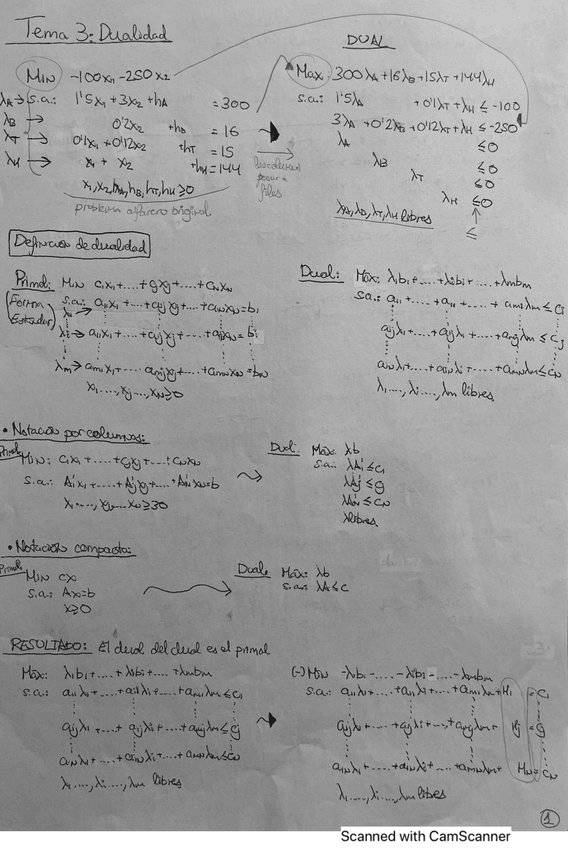 Tema 3: Dualidad
DUAL
MIN -100x1 -250x2
λA → s.a.: 1'5x1 + 3x2 + hA = 300
λB → 0'2x2 + hB = 16
λT → 0'1x1 + 0'12x2 + hT = 15
λH → x1 + x2 + hH = 144
x1, x2, hA, hB, hT, hH ≥ 0
problema alfarero original
Max: 300λA + 16λB + 15λT + 144λH
s.a: 1'5λA + 0'1λT + λH ≤ -100
3λA + 0'2λB + 0'12λT + λH ≤ -250
λA ≤ 0
λB ≤ 0
λT ≤ 0
λH ≤ 0
λA, λB, λT, λH libres
≤
filas
Definición de dualidad
Primal: Min c1x1 + .... + cjxj + .... + cnxn
(Forma Estándar)
s.a: a11x1 + .... + a1jxj + .... + a1nxn = b1
λi → ai1x1 + .... + aijxj + .... + ainxn = bi
λm → am1x1 + .... + amjxj + .... + amnxn = bm
x1, ..., xj, ..., xn ≥ 0
Dual: Máx: λ1b1 + .... + λibi + .... + λmbm
s.a: a11 + .... + ai1 + .... + am1λm ≤ c1
a1jλ1 + .... + aijλi + .... + amjλm ≤ cj
a1nλ1 + .... + ainλi + .... + amnλm ≤ cn
λ1, ..., λi, ..., λm libres
• Notación por columnas:
Primal Min: c1x1 + .... + cjxj + .... + cnxn
s.a: A1x1 + .... + Ajxj + .... + Anxn = b
x1, ..., xj, ... xn ≥ 0
Dual: Máx: λb
s.a.: λA1 ≤ c1
λAj ≤ cj
λAn ≤ cn
λ libres
• Notación compacta:
Primal Min cx
s.a: Ax = b
x ≥ 0
Dual Máx: λb
s.a: λA ≤ c
RESULTADO: El dual del dual es el primal
Máx: λ1b1 + .... + λibi + .... + λmbm
s.a: a11λ1 + .... + ai1λi + .... + am1λm ≤ c1
a1jλ1 + .... + aijλi + .... + amjλm ≤ cj
a1nλ1 + .... + ainλi + .... + amnλm ≤ cn
λ1, ..., λi, ..., λm libres
(-) Min -λ1b1 - .... - λibi - .... - λmbm
s.a: a11λ1 + .... + ai1λi + .... + am1λm + H1 = c1
a1jλ1 + .... + aijλi + .... + amjλm + Hj = cj
a1nλ1 + .... + ainλi + .... + amnλm + Hn = cn
λ1, ..., λi, ..., λm libres
1
Scanned with CamScanner